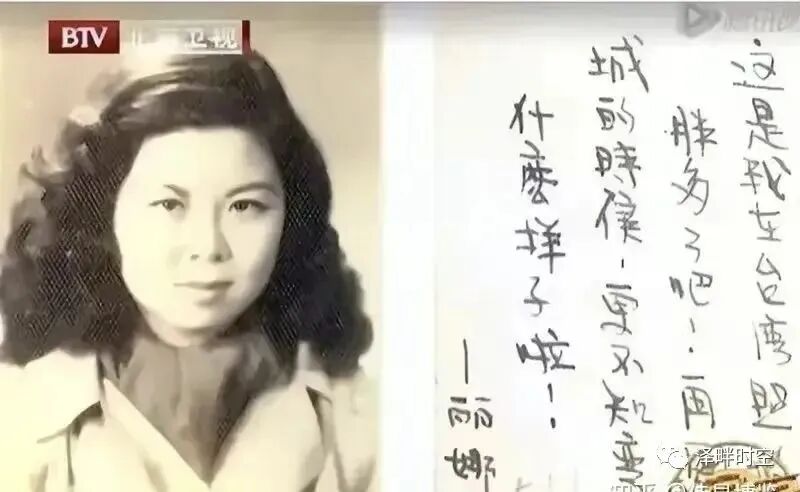 BTV
这是我在台湾照
胖多了吧！再
城的時候，更不知变
什麼樣子啦！
—丽娜
泽畔时空